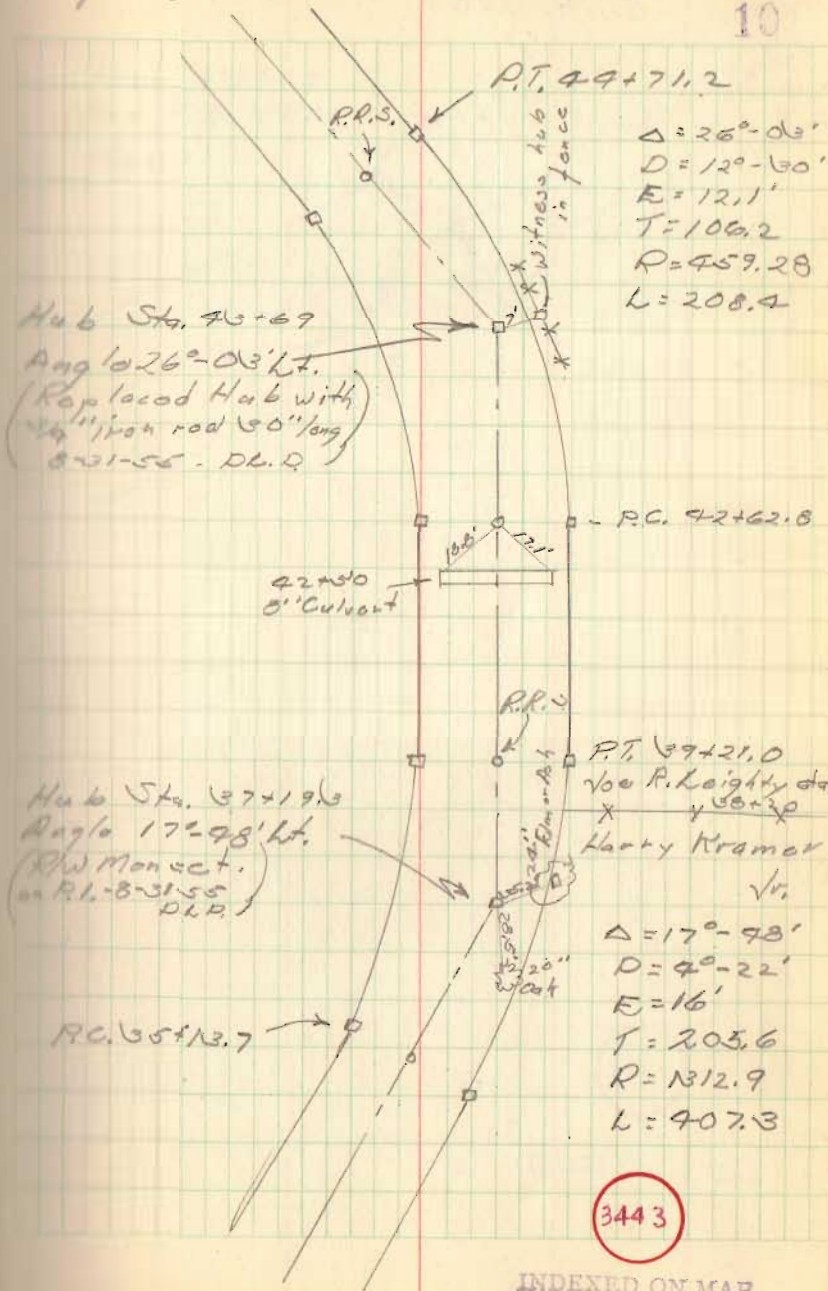 10
P.T. 44+71.2
R.R.S.
Witness hub
in fence
Δ = 26°-03'
D = 12°-30'
E = 12.1'
T = 106.2
R = 459.28
L = 208.4
7'
Hub Sta. 43+69
Angle 26°-03' Lt.
(Replaced Hub with
3/4" iron rod 30" long
8-31-55 - DL.D.)
P.C. 42+62.8
17.1'
42+30
8" Culvert
R.R.S.
P.T. 39+21.0
Joe R. Leighty
X 38+20 X
Harry Kramer
Jr.
24"
Elm or Ash
Hub Sta. 37+19.3
Angle 17°-48' Lt.
(R/W Mon set.
on P.I. - 8-31-55
DLD.)
28.5'
20"
Oak
Δ = 17°-48'
D = 4°-22'
E = 16'
T = 205.6
R = 1312.9
L = 407.3
P.C. 35+13.7
3443
INDEXED ON MAP